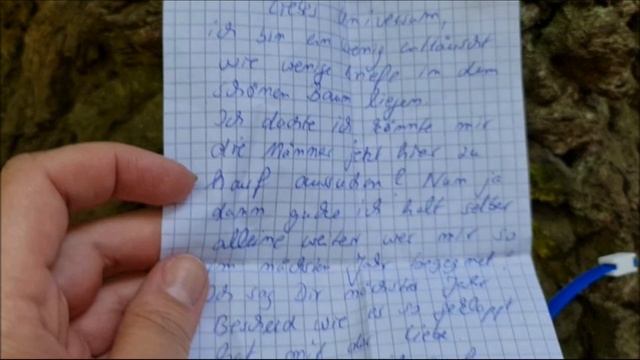 Liebes Universum,
ich bin ein wenig enttäuscht
wie wenige Briefe in dem
schönen Baum liegen.
Ich dachte ich könnte mir
die Männer jetzt hier zu
hauf aussuchen! Nun ja
dann gucke ich halt selber
alleine weiter wer mir so
im nächsten Jahr begegnet!
Ich sag Dir nächstes Jahr
Bescheid wie es so geklappt
hat mit der Liebe